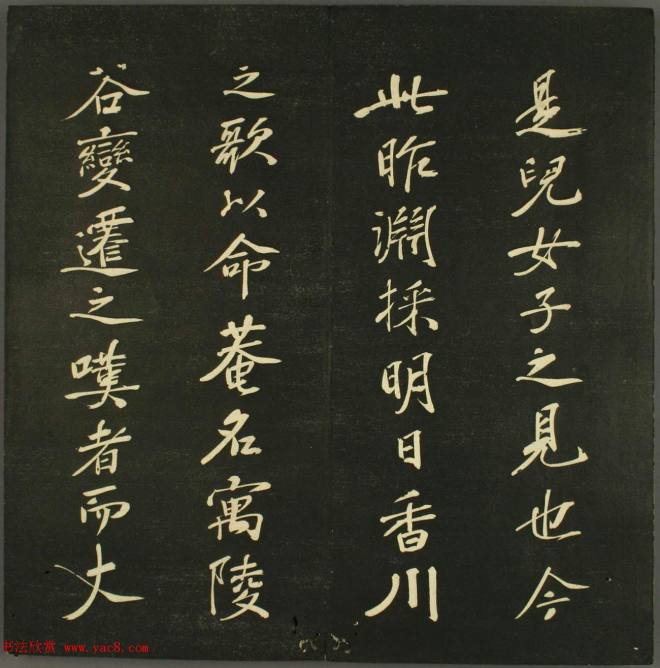 是兒女子之見也今
此昨淵採明日香川
之歌以命菴名寓陵
谷變遷之嘆者而丈
书法欣赏 www.yac8.com